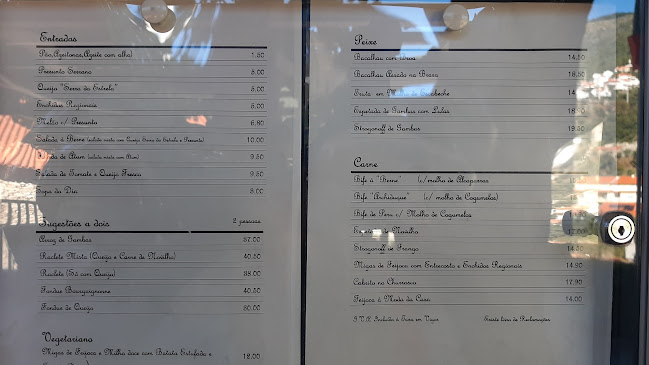 Entradas
Pão, Azeitonas, Azeite com alho) 1.50
Presunto Serrano 5.00
Queijo "Serra da Estrela" 5.00
Enchidos Regionais 5.00
Melão c/ Presunto 6.80
Salada à Berne (salada mista com Queijo Serra da Estrela e Presunto) 10.00
de Atum (salada mista com Atum) 9.50
Salada de Tomate e Queijo Fresco 9.50
Sopa do Dia 3.00
Sugestões a dois 2 pessoas
Arroz de Gambas 37.00
Raclete Mista (Queijo e Carne de Novilho) 40.50
Raclete (Só com Queijo) 38.00
Fondue Bourguignonne 40.50
Fondue de Queijo
Vegetariano
Migas de Feijoca e Milho doce com Batata Estufada e 12.00
Peixe
Bacalhau com broa 14.50
Bacalhau Assado na Brasa 18.50
Truta em Molho de Escabeche
Espetada de Gambas com Lulas
Strogonoff de Gambas
Carne
Bife à "Berne" (c/molho de Alcaparras
Bife "Archiduque" (c/ molho de Cogumelos)
Bife de Peru c/ Molho de Cogumelos
de Novilho
Strogonoff de Frango
Migas de Feijoca com Entrecosto e Enchidos Regionais 14.90
Cabrito no Churrasco 17.90
Feijoca à Moda da Casa 14.00
I.V.A. Incluído à Taxa em Vigor Existe livro de Reclamações